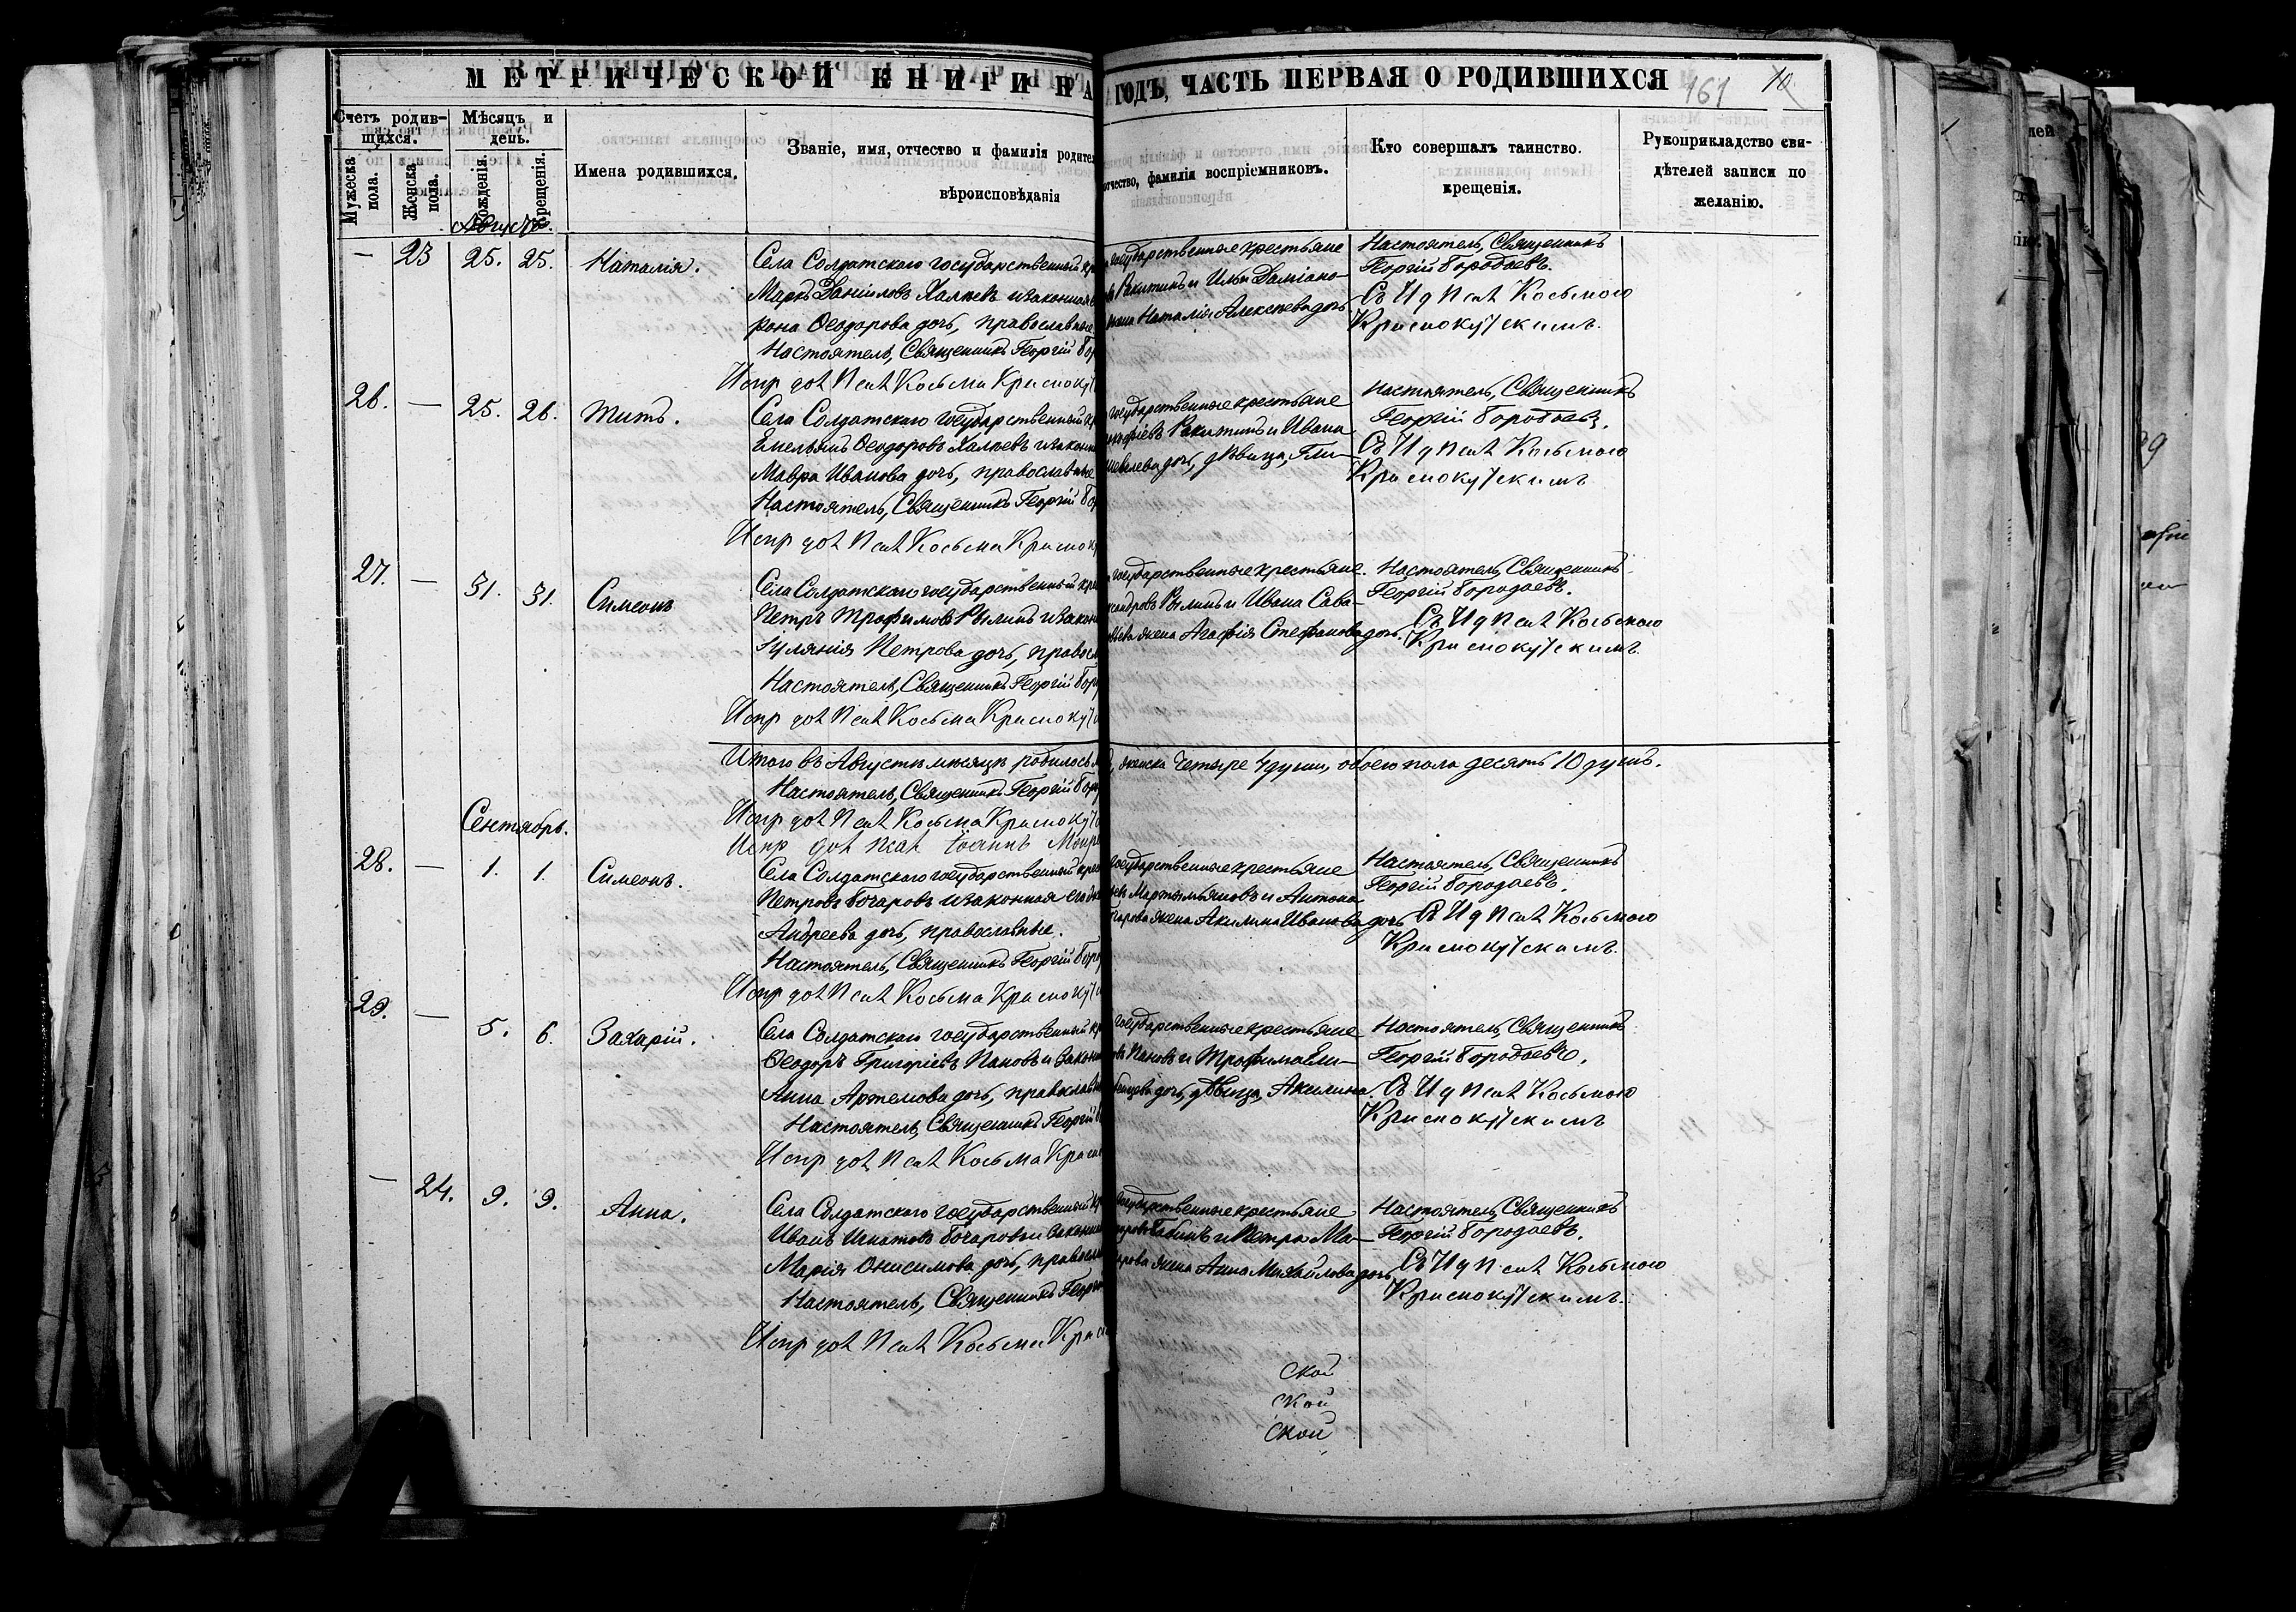 МЕТРИЧЕСКОЙ КНИГИ НА ГОДЪ, ЧАСТЬ ПЕРВАЯ О РОДИВШИХСЯ 161 10
Счетъ родив-
шихся.
Мужеска пола.
Женска пола.
Мѣсяцъ и день.
рожденія.
крещенія.
Имена родившихся.
Званіе, имя, отчество и фамилія родител
вѣроисповѣданія
отчество, фамилія воспріемниковъ.
Кто совершалъ таинство.
крещенія.
Рукоприкладство сви-
дѣтелей записи по
желанію.
Августъ.
— 23 25. 25. Наталія.
Села Солдатскаго государственный кр
Маркъ Даніиловъ Халеевъ и законная
Ѳеодорова дочь, православные
Настоятель, Священникъ Георгій Бор
Испр дол Псал Косьма Краснокут
государственные крестьяне
Ракитинъ и Ильи Даміано-
жена Наталія Алексѣева дочь
Настоятель, Священникъ
Георгій Бородаевъ.
Съ И д Псал Косьмою
Краснокутскимъ.
26. — 25. 26. Титъ.
Села Солдатскаго государственный кр
Емельянъ Ѳеодоровъ Халеевъ и законн
Мавра Иванова дочь, православные
Настоятель, Священникъ Георгій Бор
Испр дол Псал Косьма Красноку
государственные крестьяне
Ракитинъ и Ивана
дочь, дѣвица, Гли-
Настоятель, Священникъ
Георгій Бородаевъ.
Съ И д Псал Косьмою
Краснокутскимъ
27. — 31. 31. Симеонъ
Села Солдатскаго государственный кре
Петръ Трофимовъ Рылинъ и закон
Іуліанія Петрова дочь, правосл
Настоятель, Священникъ Георгій Бор
Испр дол Псал Косьма Краснокут
государственные крестьяне.
Рылинъ и Ивана Сава-
жена Агафія Стефанова дочь.
Настоятель, Священникъ
Георгій Бородаевъ.
Съ И д Псал Косьмою
Краснокутскимъ.
Итого въ Августѣ мѣсяцѣ родилось м
женска четыре 4 души, обоего пола десять 10 душъ.
Настоятель, Священникъ Георгій Бор
Испр дол Псал Косьма Краснокут
Испр дол Псал Іоаннъ
Сентябрь.
28. — 1. 1. Симеонъ.
Села Солдатскаго государственный кре
Петровъ Бочаровъ и законная его же
Андреева дочь, православные.
Настоятель, Священникъ Георгій Бор
Испр дол Псал Косьма Краснокут
государственные крестьяне
Мартемьяновъ и Антона
жена Акилина Иванова дочь
Настоятель, Священникъ
Георгій Бородаевъ.
Съ И д Псал Косьмою
Краснокутскимъ.
29. — 5. 6. Захарій.
Села Солдатскаго государственный кр
Ѳеодоръ Григоріевъ Пановъ и законн
Анна Артемова дочь, православн
Настоятель, Священникъ Георгій
Испр дол Псал Косьма Красн
государственные крестьяне
Пановъ и Трофима Ели-
дочь, дѣвица, Акилина.
Настоятель, Священникъ
Георгій Бородаевъ.
Съ И д Псал Косьмою
Краснокутскимъ
— 24. 9. 9. Анна.
Села Солдатскаго государственный кр
Иванъ Игнатовъ Бочаровъ и законная
Марія Онисимова дочь, правосла
Настоятель, Священникъ Георг
Испр дол Псал Косьма Красн
государственные крестьяне
и Петра Ма-
жена Анна Михайлова дочь
Настоятель, Священникъ
Георгій Бородаевъ.
Съ И д Псал Косьмою
Краснокутскимъ.
ской
ской
ской